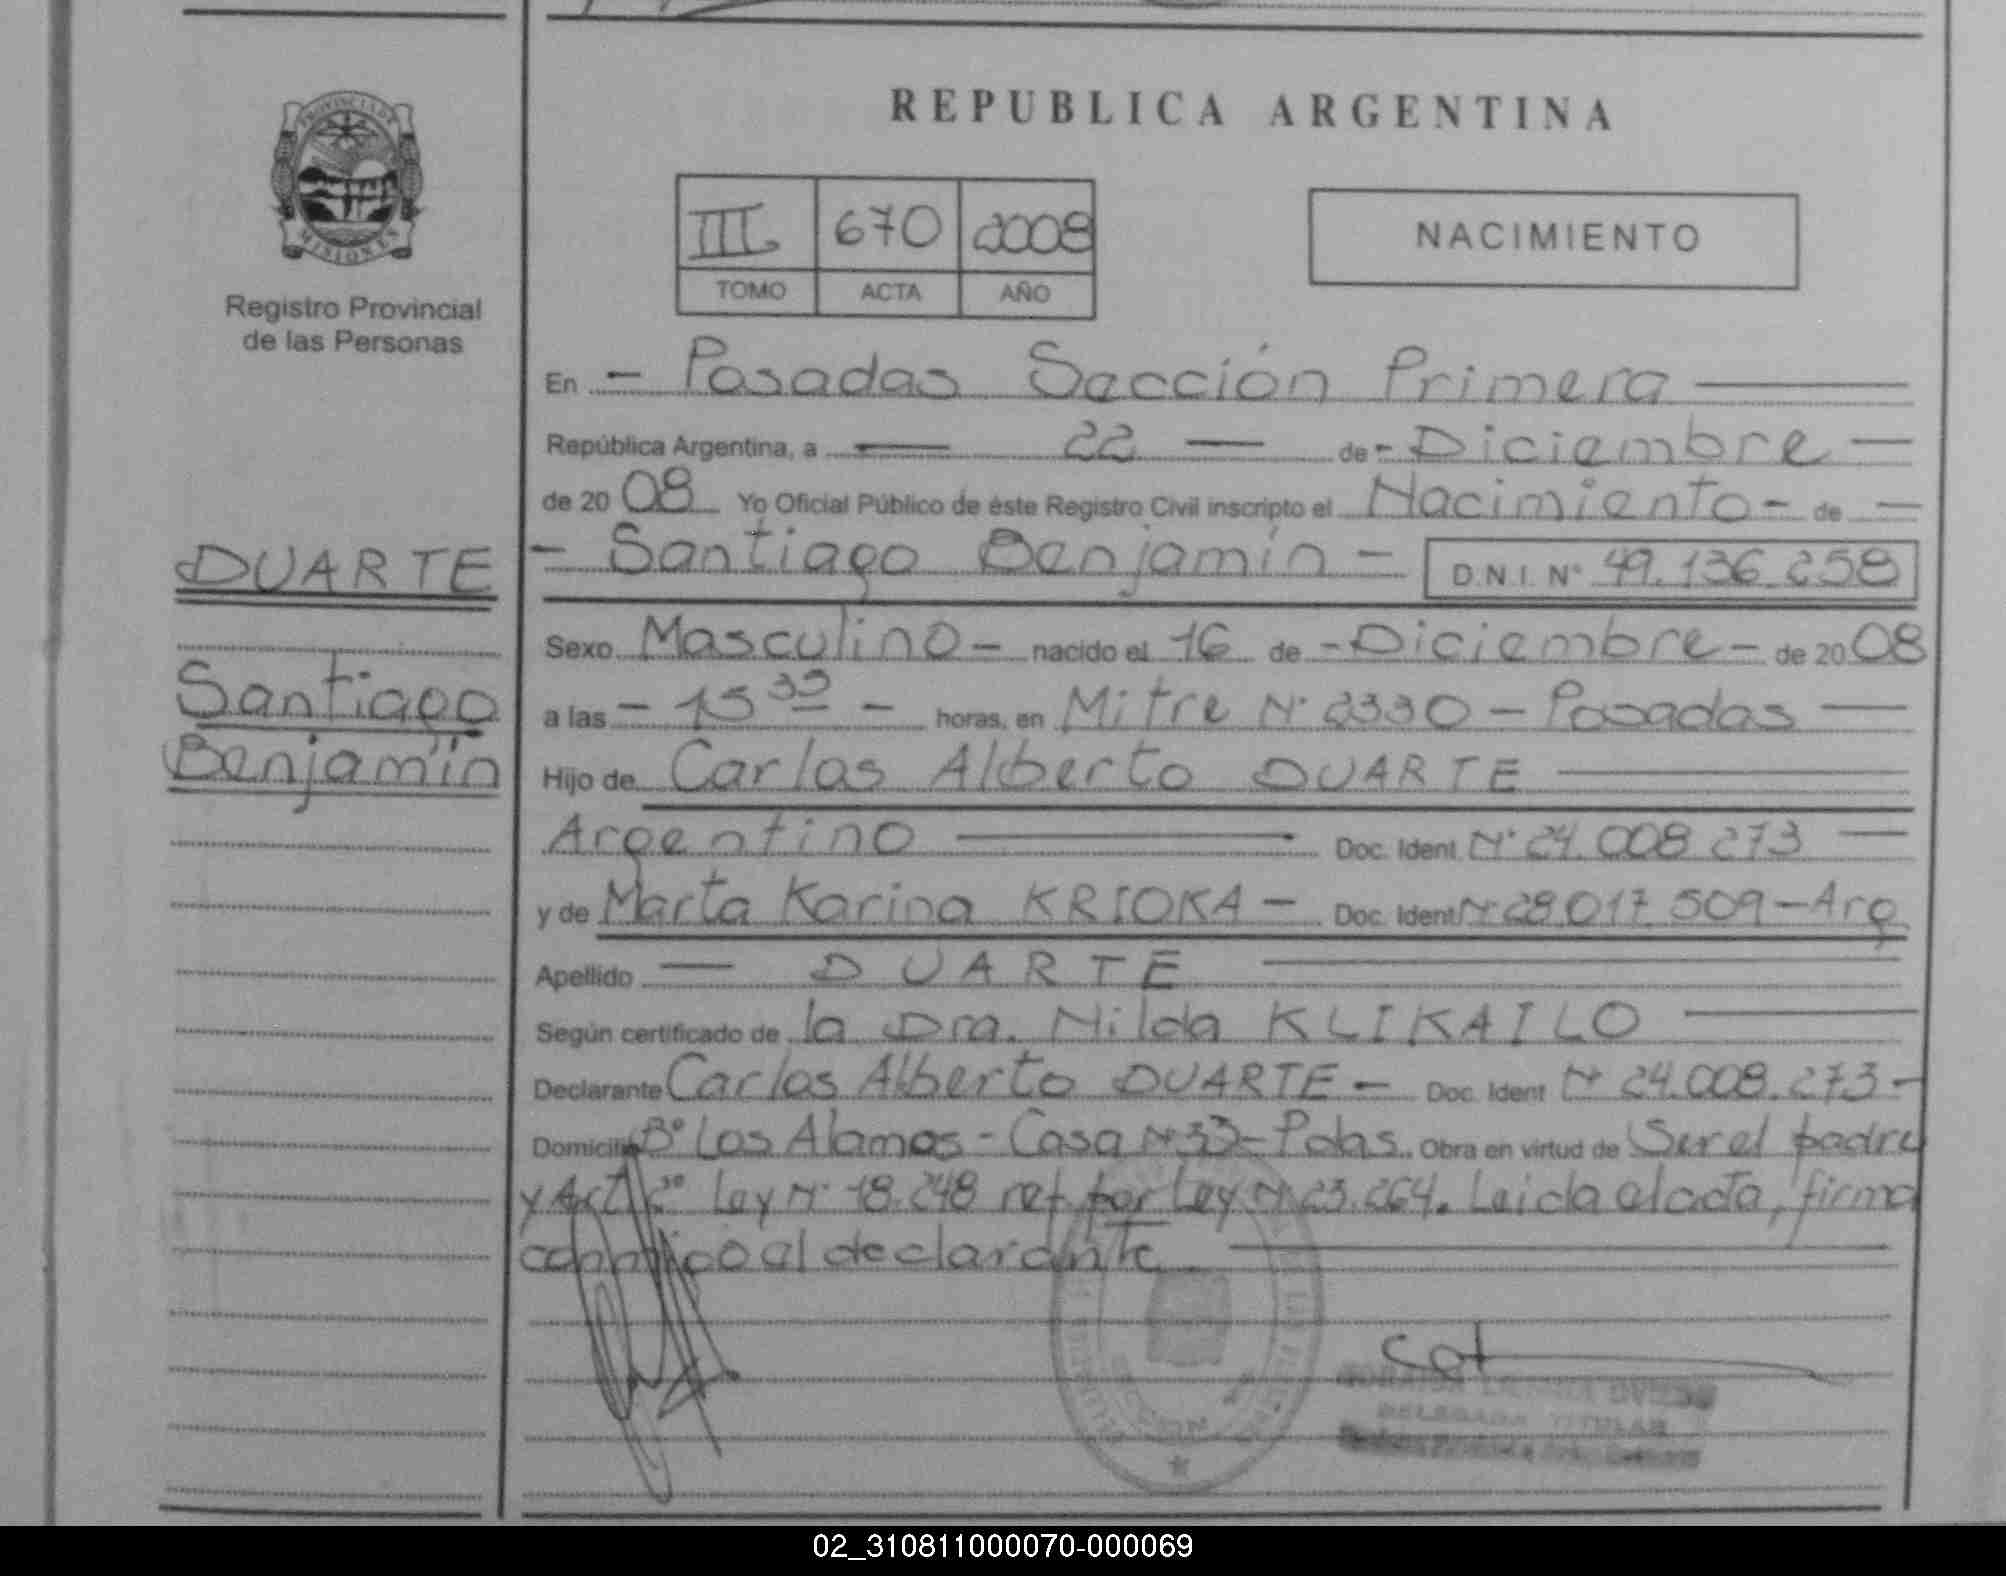 REPUBLICA ARGENTINA
PROVINCIA DE
MISIONES
Registro Provincial
de las Personas
III 670 2008
TOMO ACTA AÑO
NACIMIENTO
En - Posadas Sección Primera
República Argentina, a 22 de - Diciembre
de 20 08 Yo Oficial Público de éste Registro Civil inscripto el Nacimiento - de
DUARTE
- Santiago Benjamín - D.N.I. N° 49.136.258
Sexo Masculino - nacido el 16 de - Diciembre - de 20 08
Santiago
a las - 15 35 - horas, en Mitre N° 2330 - Posadas
Benjamín
Hijo de Carlos Alberto DUARTE
Argentino Doc. Ident N° 24.008.273
y de Marta Karina KRIOKA - Doc. Ident N° 28.017.509 - Arg
Apellido DUARTE
Según certificado de la Dra. Nilda KLIKAILO
Declarante Carlos Alberto DUARTE - Doc. Ident N° 24.008.273 -
Domicilio B° Los Alamos - Casa N° 33 - Pdas. Obra en virtud de Ser el padre
y Art. 2° Ley N° 18.248 ref por Ley N° 23.264. Leida el acta, firma
conmigo el declarante.
DELEGADA TITULAR
02_310811000070-000069